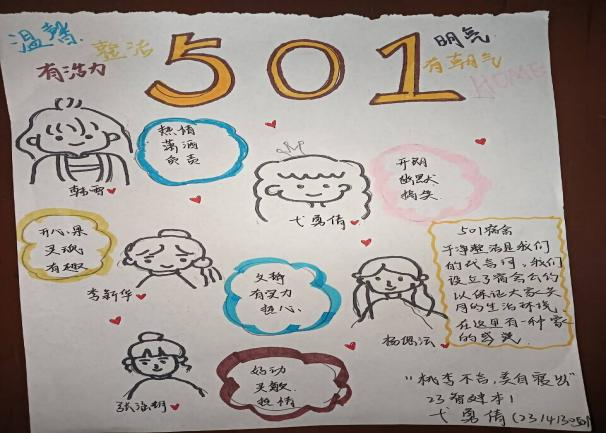 温馨
整洁
501
明气
有活力
有朝气
HOME
热情
潇洒
负责
开朗
幽默
搞笑
韩雪
弋勇倩
开心果
灵魂
有趣
李新华
文静
有实力
热心
501宿舍
干净整洁是我们
的代名词，我们
设立了宿舍公约
以保证大家共
用的生活环境
在这里有一种家
的感觉
好动
灵敏
热情
"桃李不言，
23智建本1
弋勇倩